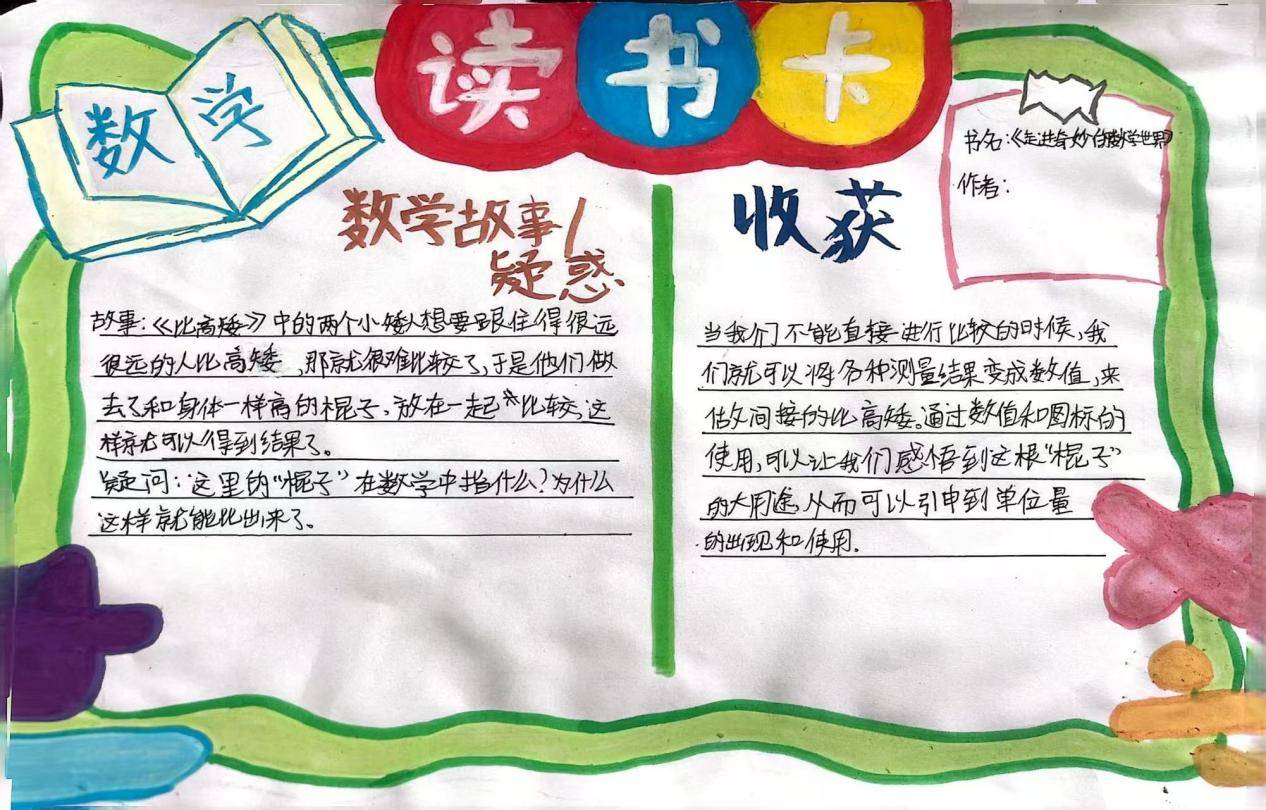 读书卡
数学
书名:《走进奇妙的数学世界》
作者:
数学故事/
疑惑
故事:《比高矮》中的两个小矮人想要跟住得很远
很远的人比高矮,那就很难比较了,于是他们做
去了和身体一样高的棍子,放在一起来比较,这
样就可以得到结果了。
疑问:这里的“棍子”在数学中指什么?为什么
这样就能比出来了。
收获
当我们不能直接进行比较的时候,我
们就可以将各种测量结果变成数值,来
做间接的比高矮。通过数值和图标的
使用,可以让我们感悟到这根“棍子”
的大用途,从而可以引申到单位量
的出现和使用.